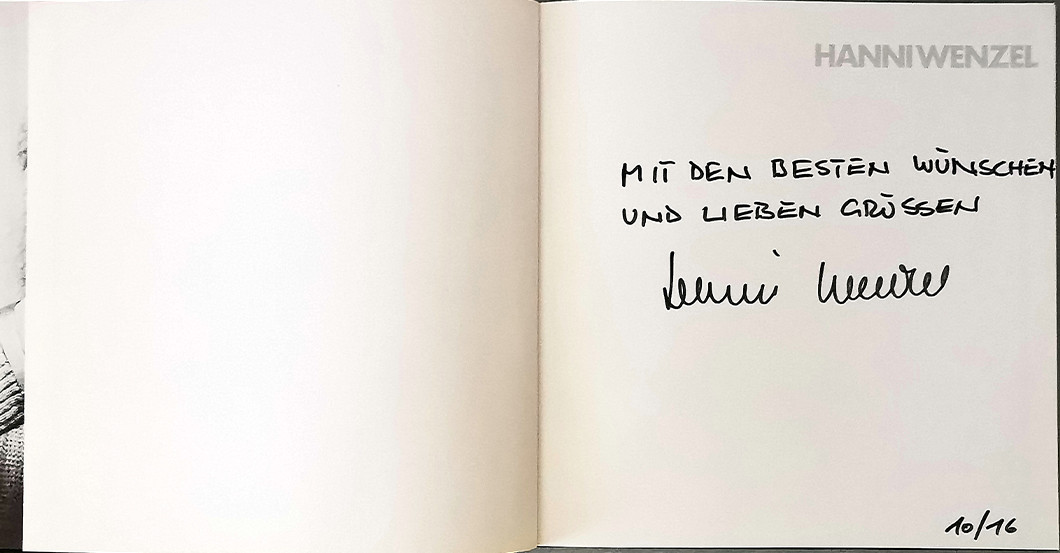 HANNI WENZEL
MIT DEN BESTEN WÜNSCHEN
UND LIEBEN GRÜSSEN
Hanni Wenzel
10/16